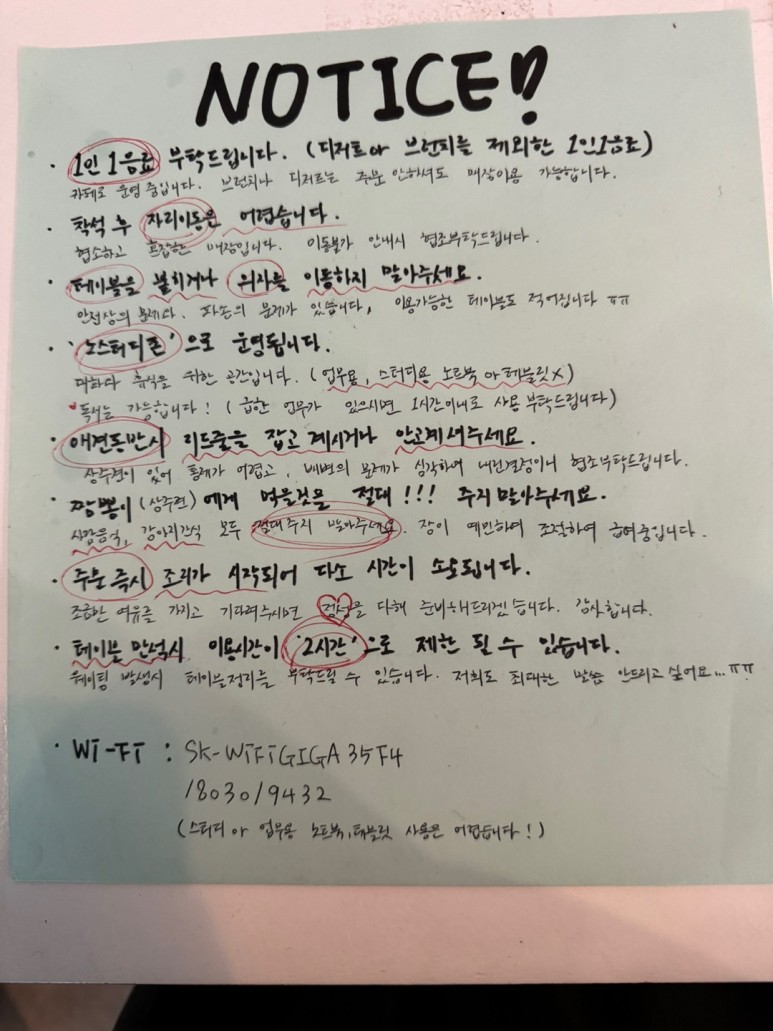 NOTICE!!
· 1인 1음료 부탁드립니다. (디저트 or 브런치를 제외한 1인1음료)
카페로 운영 중입니다. 브런치나 디저트는 주문 안하셔도 매장이용 가능합니다.
· 착석 후 자리이동은 어렵습니다.
협소하고 혼잡한 매장입니다. 이동불가 안내시 협조부탁드립니다.
· 테이블을 붙히거나 의자를 이동하지 말아주세요.
안전상의 문제나. 파손의 문제가 있습니다, 이용가능한 테이블도 적어집니다 ㅠㅠ
· '노스터디존' 으로 운영됩니다.
대화나 휴식을 위한 공간입니다. (업무용, 스터디용 노트북 or 테블릿 X)
독서는 가능합니다! (급한 업무가 있으시면 1시간이내로 사용 부탁드립니다)
· 애견동반시 리드줄을 잡고 계시거나 안고계셔주세요.
상주견이 있어 통제가 어렵고, 배변의 문제가 심각하여 내린결정이니 협조부탁드립니다.
· 짱뽕이 (상주견) 에게 먹을것을 절대!!! 주지 말아주세요.
사람음식, 강아지간식 모두 절대 주지 말아주세요. 장이 예민하여 조절하여 급여중입니다.
· 주문 즉시 조리가 시작되어 다소 시간이 소요됩니다.
조금만 여유를 가지고 기다려주시면 정성을 다해 준비해드리겠습니다. 감사합니다.
· 테이블 만석시 이용시간이 '2시간' 으로 제한 될 수 있습니다.
웨이팅 발생시 테이블정리를 부탁드릴 수 있습니다. 저희도 최대한 말씀 안드리고 싶어요... ㅠㅠ
· Wi-Fi : SK-WiFiGIGA35F4
1803019432
(스터디 or 업무용 노트북, 태블릿 사용은 어렵습니다!)